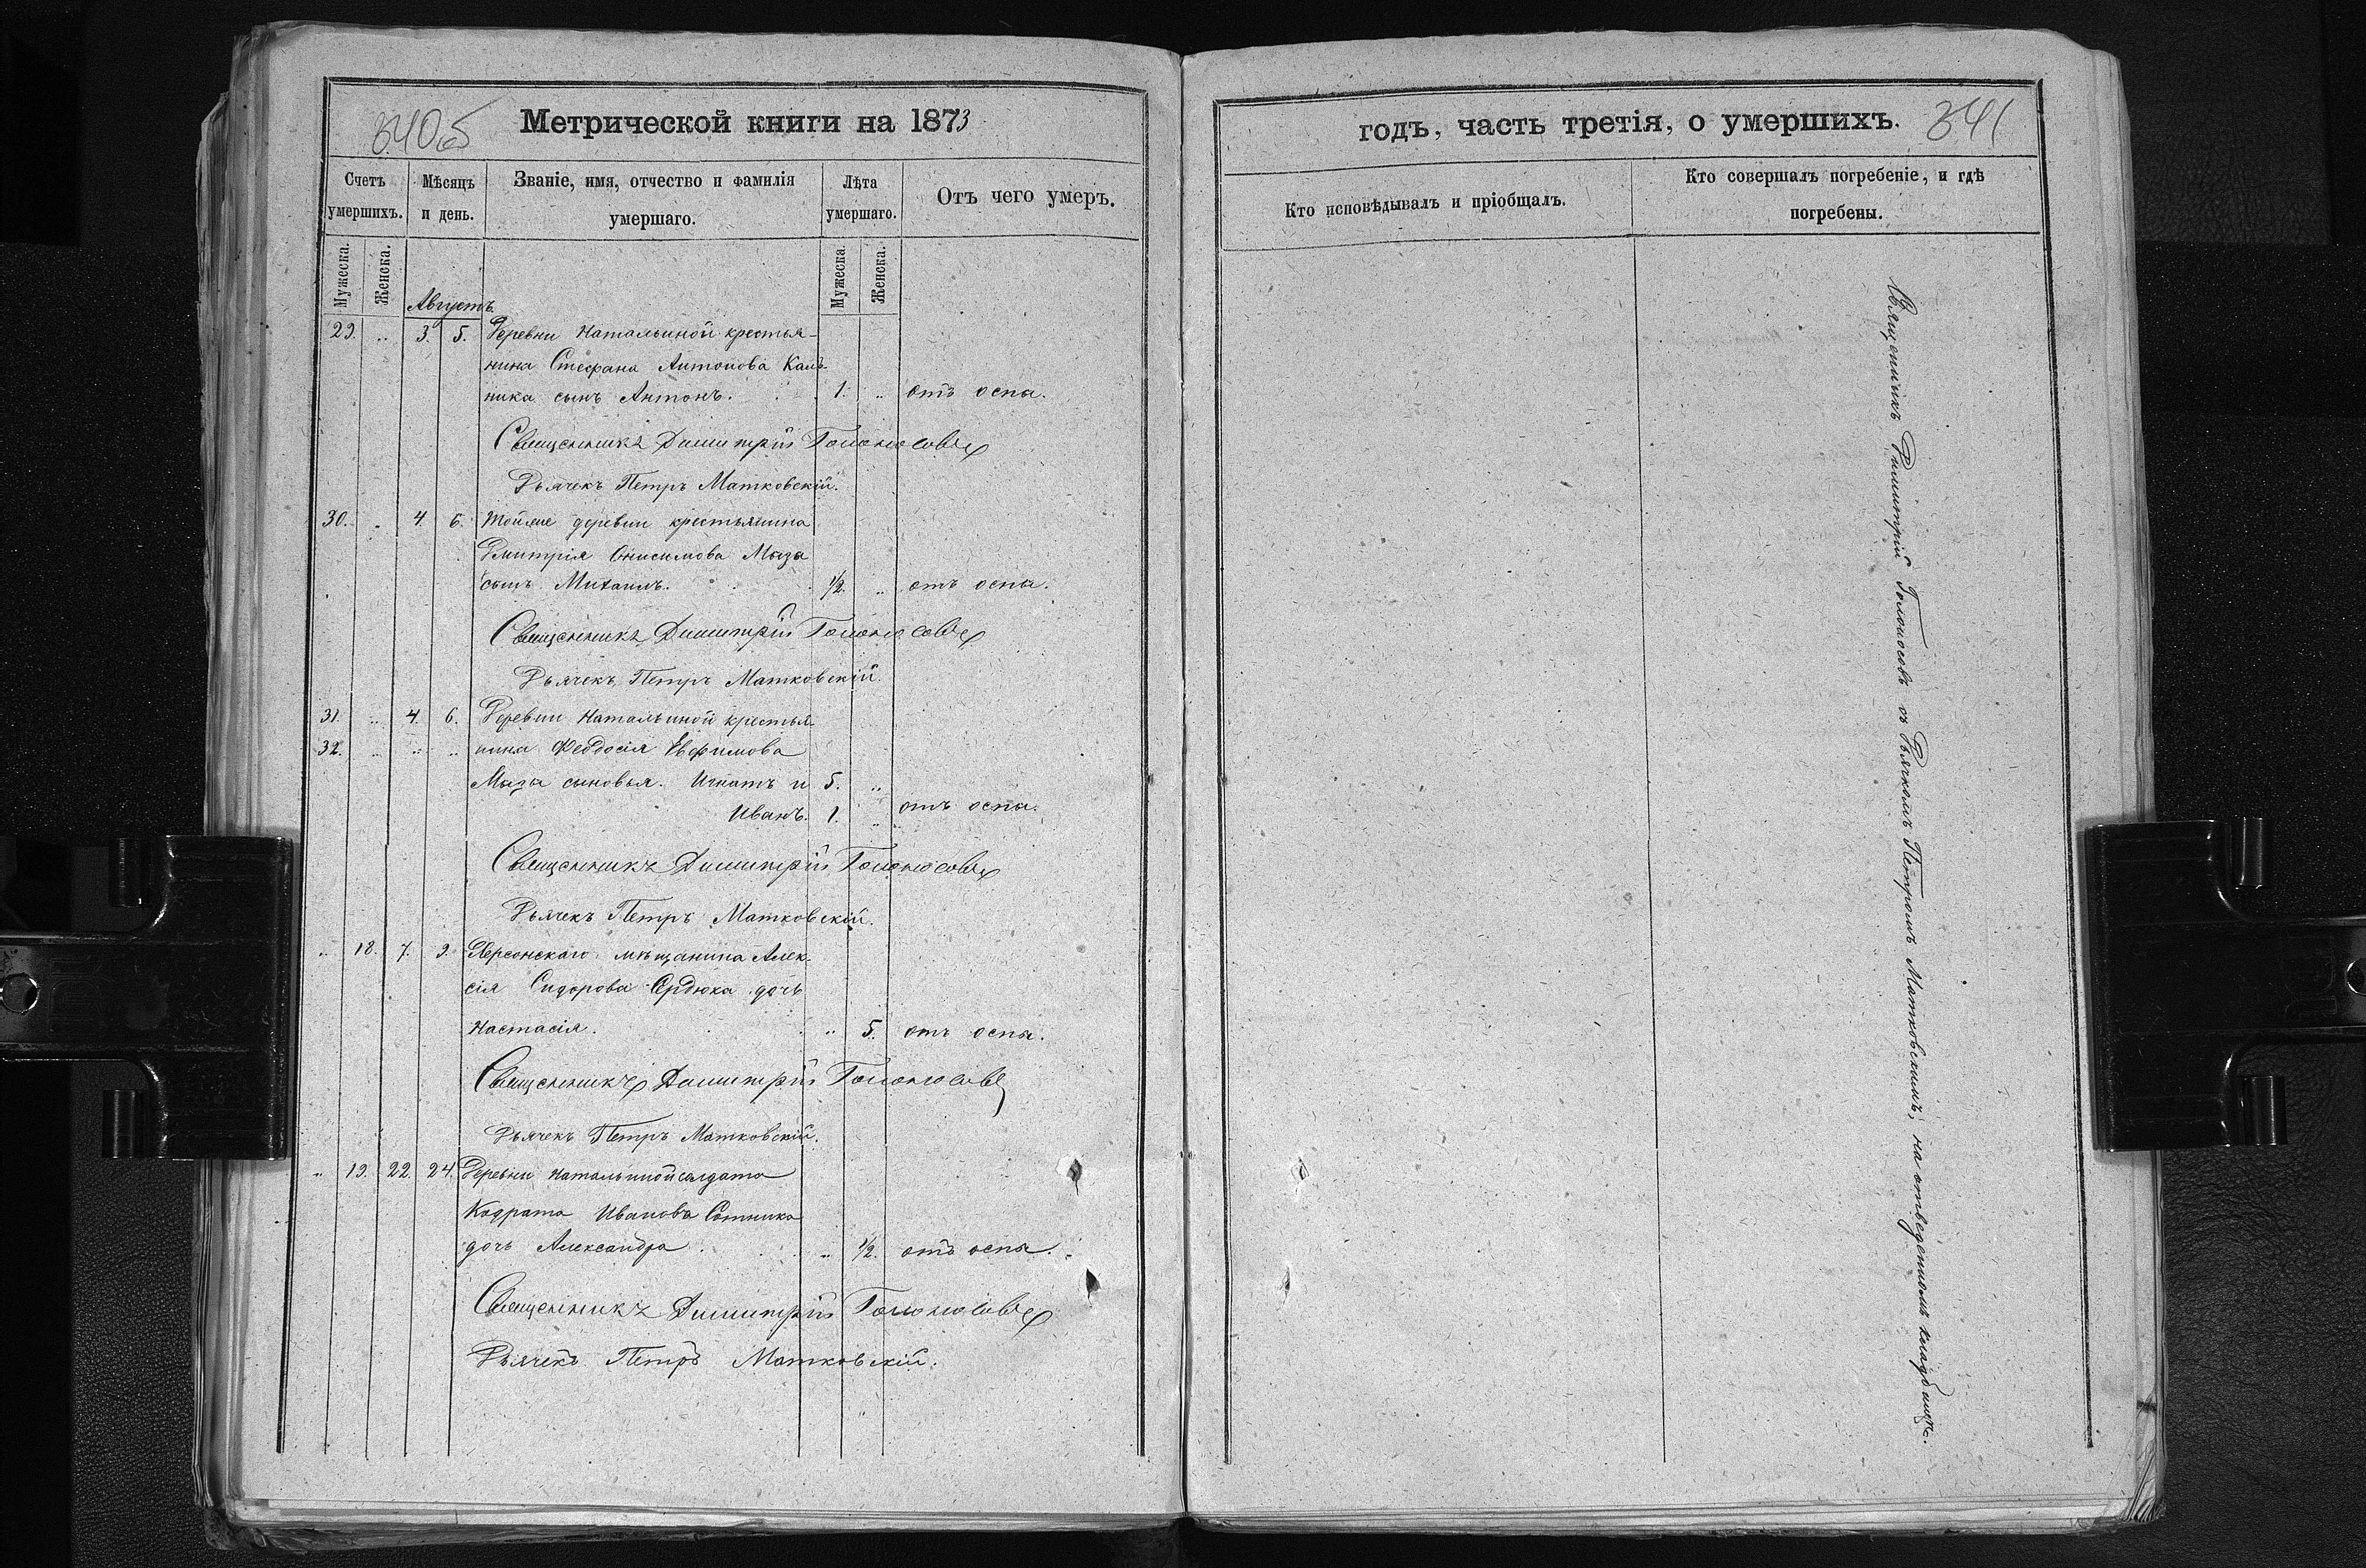 340об
Метрической книги на 1873
Счетъ умершихъ.
Мѣсяцъ и день.
Званіе, имя, отчество и фамилія умершаго.
Лѣта умершаго.
Отъ чего умеръ.
Мужеска. Женска.
Мужеска. Женска.
Августъ.
29. .. 3. 5. Деревни Натальиной крестья-
нина Стефана Антонова Каль-
ника сынъ Антонъ. 1. .. отъ оспы.
Священникъ Димитрій Голоносовъ
Дьячекъ Петръ Матковскій.
30. .. 4. 6. Тойже деревни крестьянина
Дмитрія Онисимова Мыза
сынъ Михаилъ. 1/2. .. отъ оспы.
Священникъ Димитрій Голоносовъ
Дьячекъ Петръ Матковскій.
31. .. 4. 6. Деревни Натальиной крестья
32. .. .. .. нина Феодосія Евфимова
Мыза сыновья. Игнатъ и 5. ..
Иванъ. 1. .. отъ оспы.
Священникъ Димитрій Голоносовъ
Дьячекъ Петръ Матковскій.
.. 18. 7. 9. Херсонскаго мѣщанина Алек-
сія Сидорова Сердюка дочь
Настасія. .. 5. отъ оспы.
Священникъ Димитрій Голоносовъ
Дьячекъ Петръ Матковскій.
.. 19. 22. 24. Деревни Натальиной солдата
Кодрата Иванова Сотника
дочь Александра. .. 1/2. отъ оспы.
Священникъ Димитрій Голоносовъ
Дьячекъ Петръ Матковскій.
годъ, часть третія, о умершихъ.
341
Кто исповѣдывалъ и пріобщалъ.
Кто совершалъ погребеніе, и гдѣ
погребены.
Священникъ Димитрій Голоносовъ съ Дьячкомъ Петромъ Матковскимъ, на отведенномъ кладбищѣ.